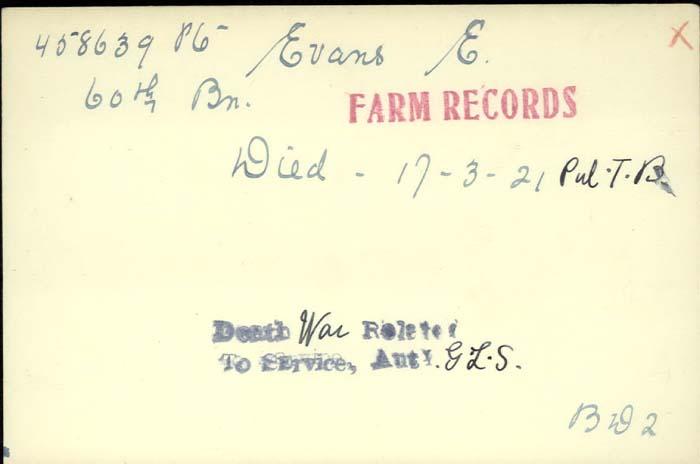 458639 Pte Evans E. X
60th Bn.
FARM RECORDS
Died - 17-3-21 Pul.T.B.
Death War Related
To Service, Auth. G.L.S.
B D 2